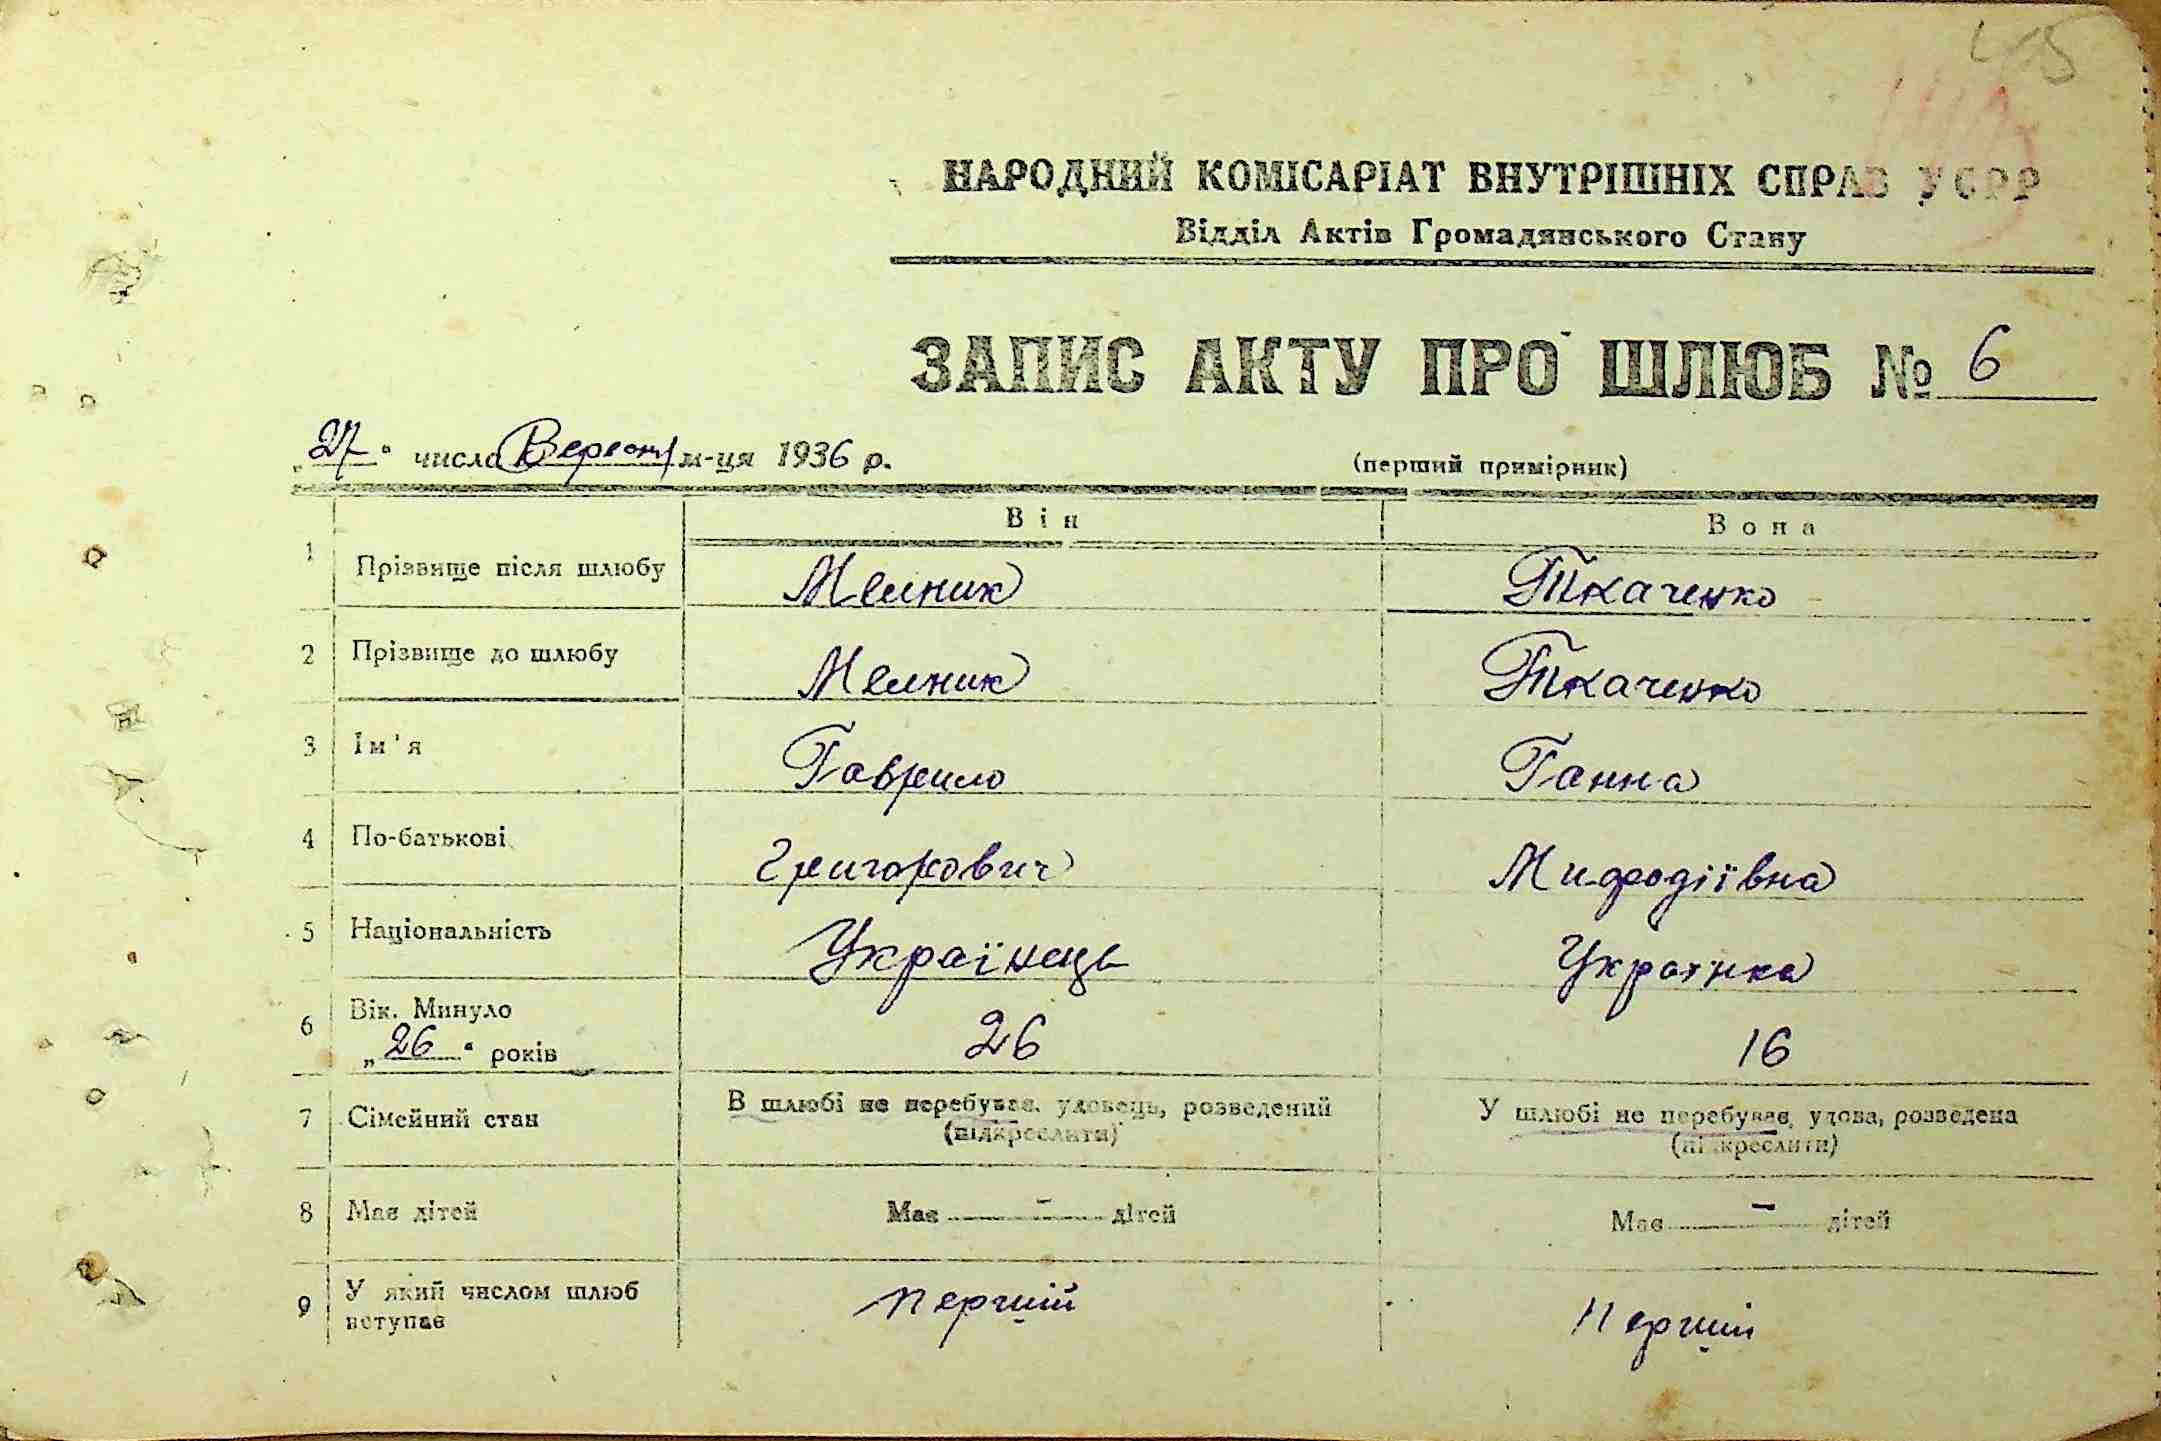 45
НАРОДНИЙ КОМІСАРІАТ ВНУТРІШНІХ СПРАВ УСРР
Відділ Актів Громадянського Стану
ЗАПИС АКТУ ПРО ШЛЮБ № 6
„27“ числа Вересня м-ця 1936 р. (перший примірник)
Він Вона
1 Прізвище після шлюбу Мелник Ткаченко
2 Прізвище до шлюбу Мелник Ткаченко
3 Ім'я Гаврило Ганна
4 По-батькові Григорович Мифодіївна
5 Національність Українець Українка
6 Вік. Минуло „26“ років 26 16
7 Сімейний стан В шлюбі не перебуває, удовець, розведений (підкреслити) У шлюбі не перебуває, удова, розведена (підкреслити)
8 Має дітей Має – дітей Має – дітей
9 У який числом шлюб вступає першій першій